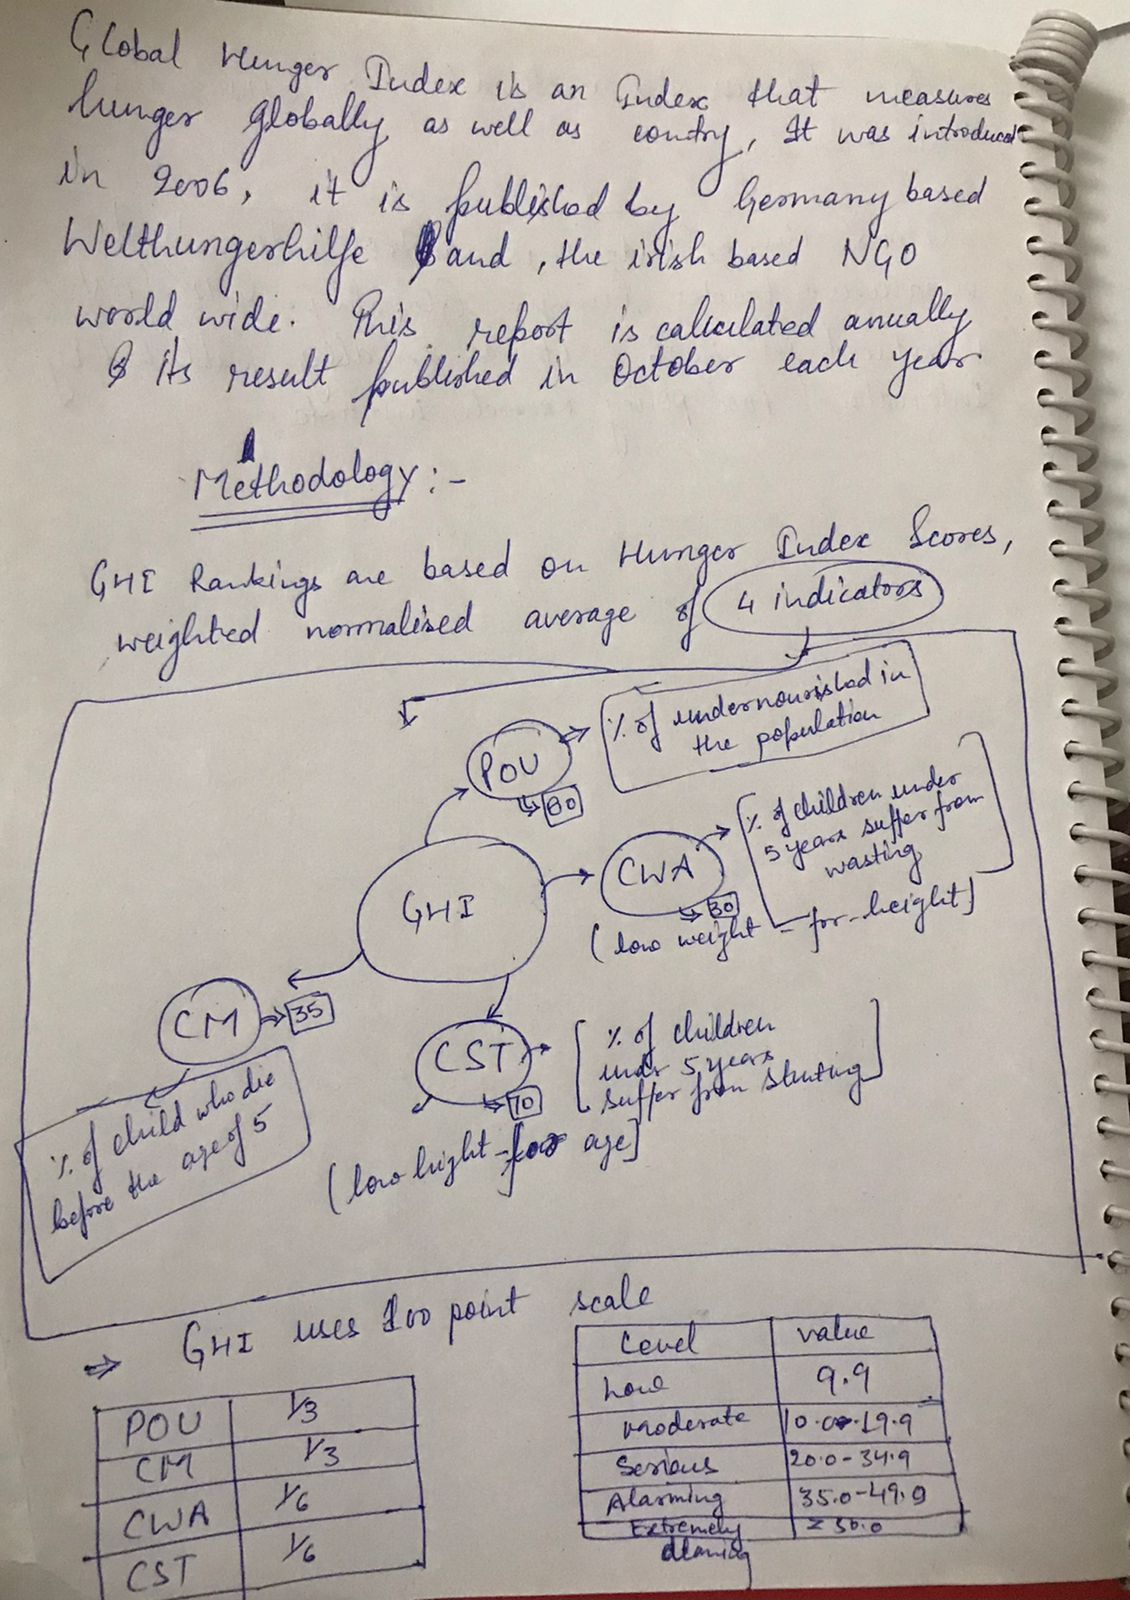 Global Hunger Index is an Index that measures
hunger globally as well as contry, It was introduced
in 2006, it is published by Germany based
Welthungerhilfe and, the irish based NGO
world wide. This report is calculated anually
& its result published in October each year
Methodology:-
GHI Rankings are based on Hunger Index Scores,
weighted normalised average of 4 indicators
% of undernourished in
the population
POU
80
% of children under
5 years suffer from
wasting
CWA
30
(low weight - for - height]
GHI
CM
35
CST
10
% of children
under 5 years
suffer from stunting
(low hight - for age]
% of child who die
before the age of 5
⇒ GHI uses 100 point scale
POU 1/3
CM 1/3
CWA 1/6
CST 1/6
Level value
Low 9.9
Moderate 10.0-19.9
Serious 20.0-34.9
Alarming 35.0-49.9
Extremely ≥ 50.0